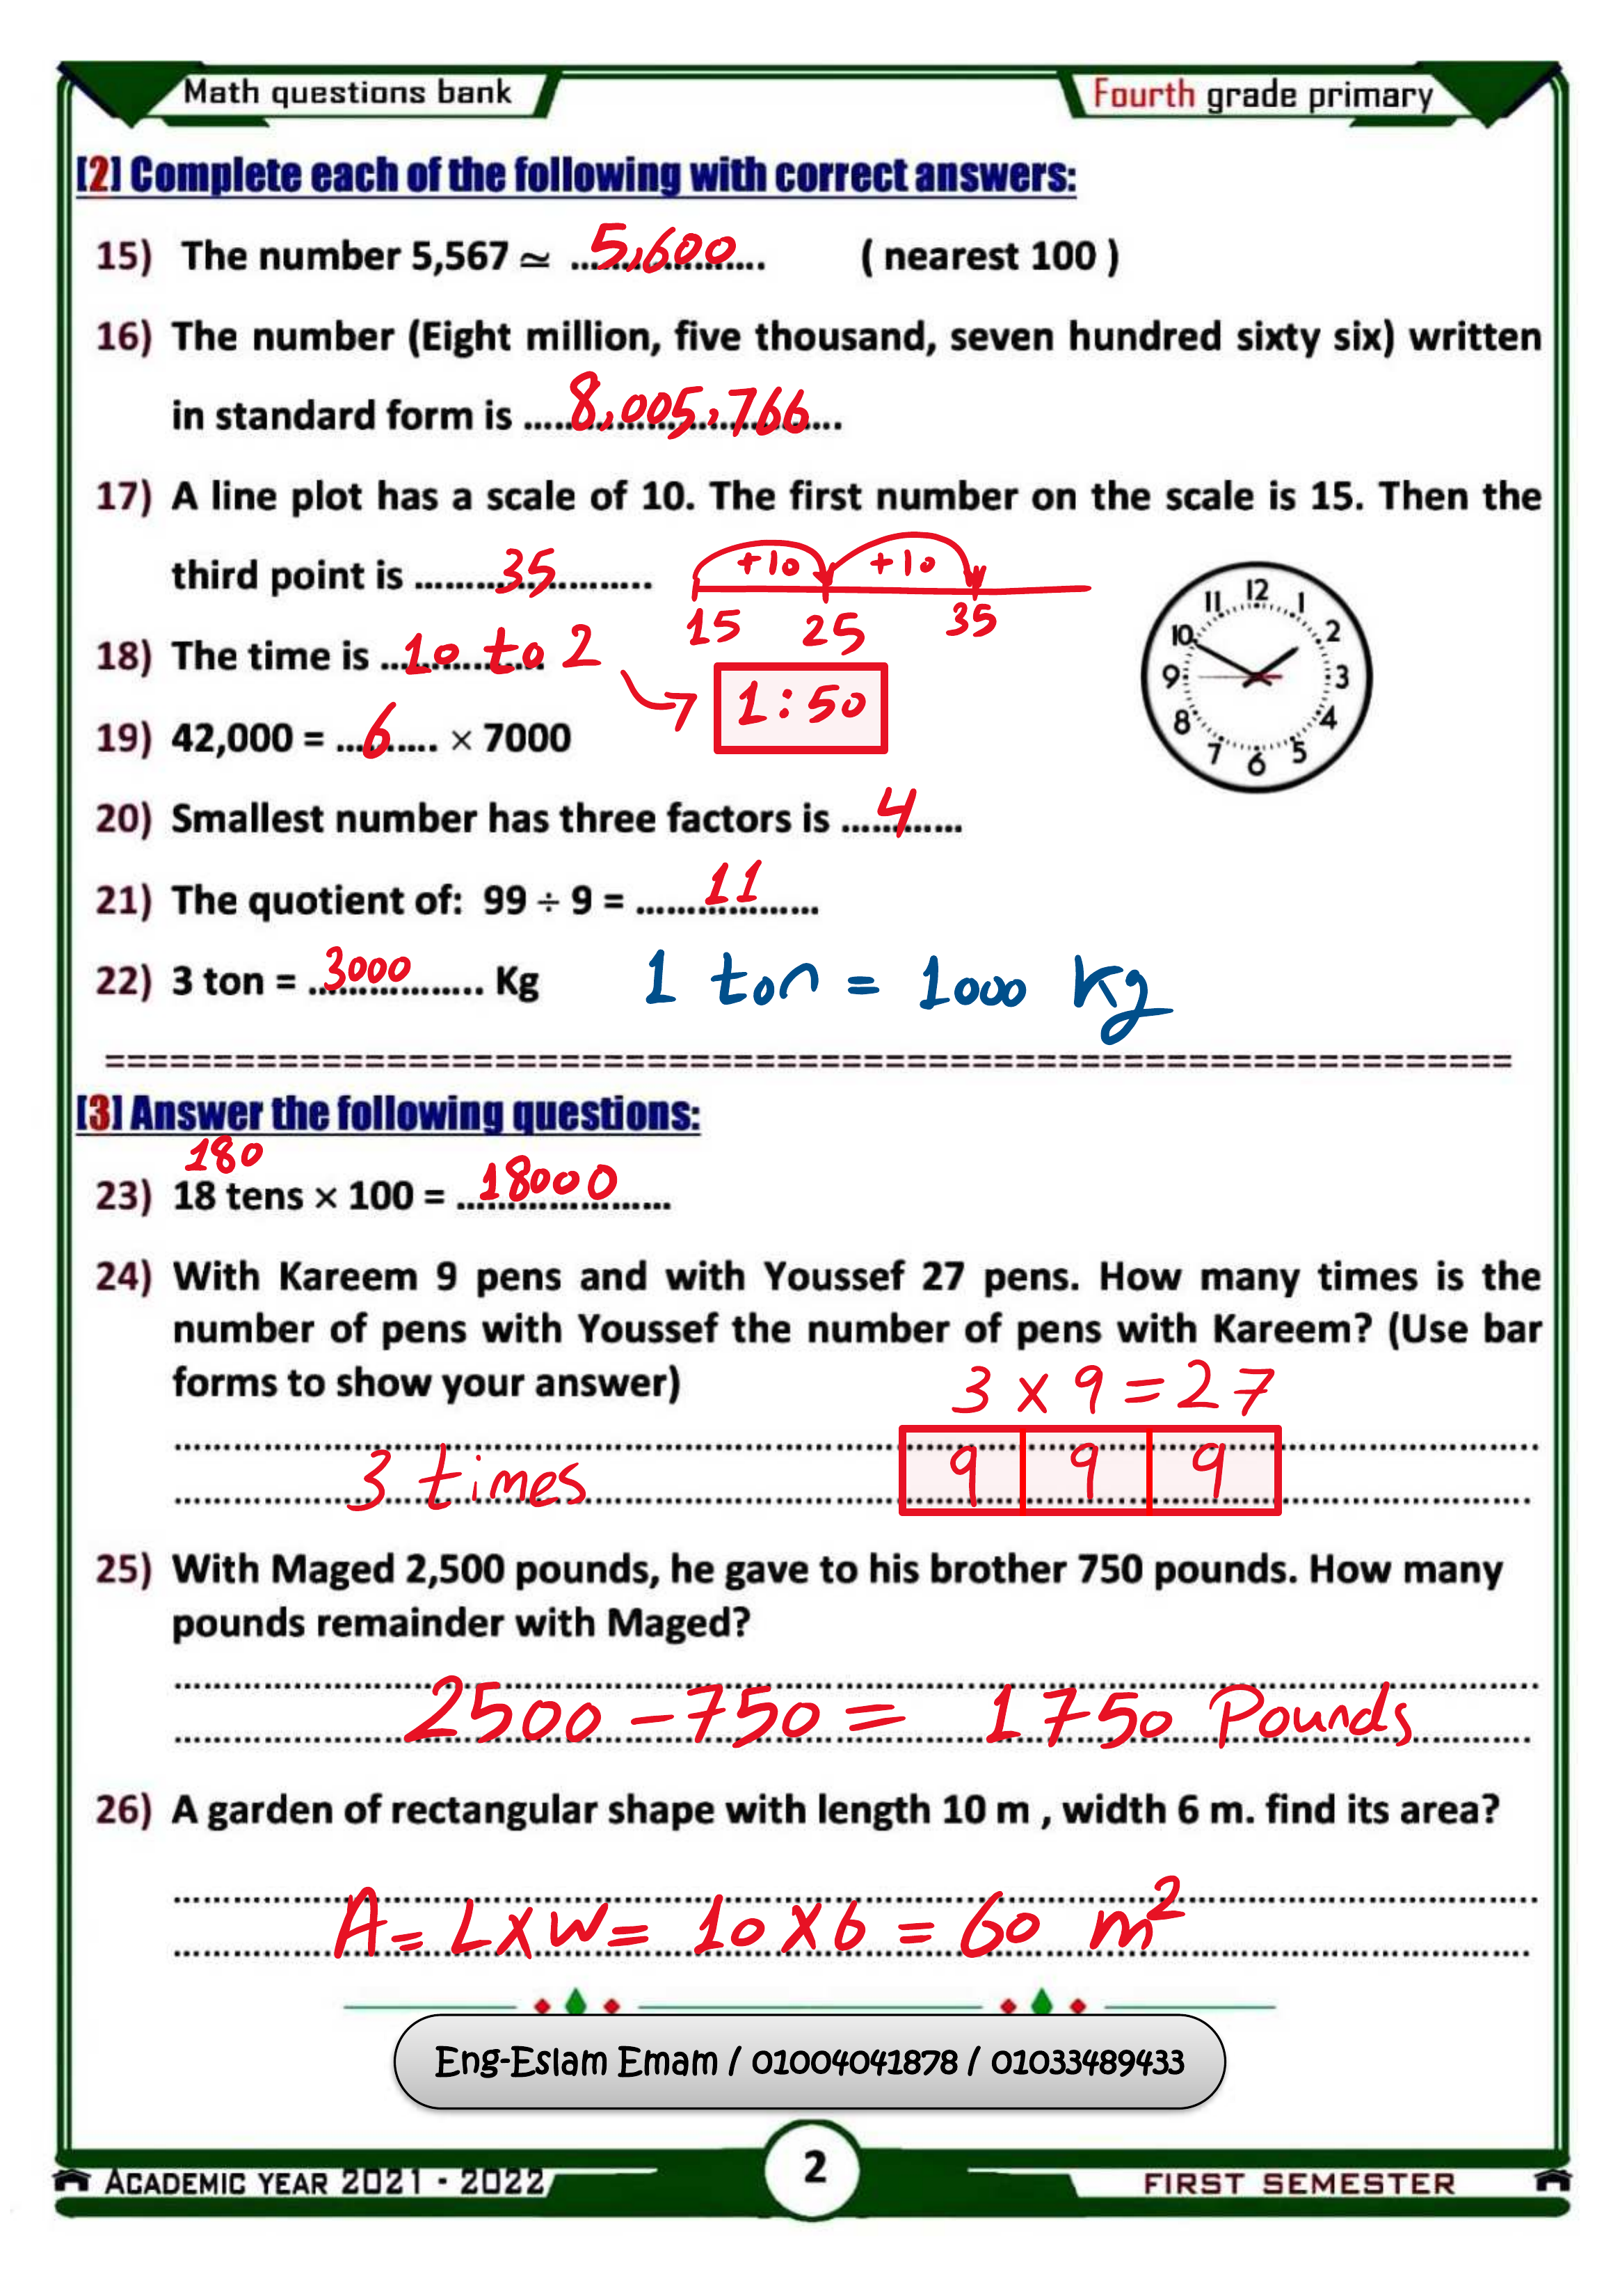 Math questions bank
Fourth grade primary
[2] Complete each of the following with correct answers:
15) The number 5,567 ≃ ...5,600... ( nearest 100 )
16) The number (Eight million, five thousand, seven hundred sixty six) written
in standard form is ...8,005,766...
17) A line plot has a scale of 10. The first number on the scale is 15. Then the
third point is ...35...
+10 +10
15 25 35
18) The time is ...10 to 2
1:50
12 1 2 3 4 5 6 7 8 9 10 11
19) 42,000 = ...6... × 7000
20) Smallest number has three factors is ...4...
21) The quotient of: 99 ÷ 9 = ...11...
22) 3 ton = ...3000... Kg
1 ton = 1000 kg
[3] Answer the following questions:
180
23) 18 tens × 100 = ...18000...
24) With Kareem 9 pens and with Youssef 27 pens. How many times is the
number of pens with Youssef the number of pens with Kareem? (Use bar
forms to show your answer)
3 × 9 = 27
3 times
9 9 9
25) With Maged 2,500 pounds, he gave to his brother 750 pounds. How many
pounds remainder with Maged?
2500 - 750 = 1750 Pounds
26) A garden of rectangular shape with length 10 m , width 6 m. find its area?
A = L X W = 10 X 6 = 60 m²
Eng-Eslam Emam / 01004041878 / 01033489433
ACADEMIC YEAR 2021 - 2022
2
FIRST SEMESTER